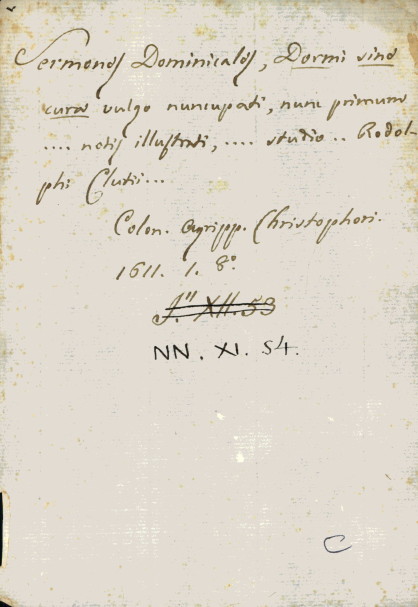 Sermones Dominicales, Dormi sine
cura vulgo nuncupati, nunc primum
.... notis illustrati, .... studio .. Rodol-
phi Clutii...
Colon. Agripp. Christophori.
1611. 1. 8°.
J." XII. 53
NN. XI. 54.
C